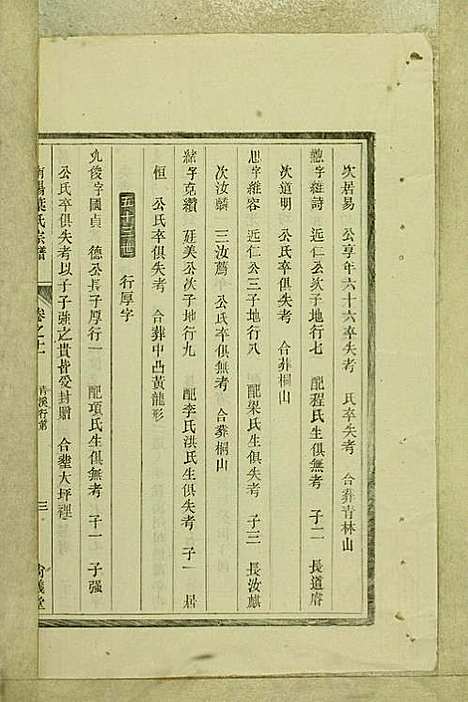 次居易　公享年六十六卒失考　氏卒失考　合葬青林山
字維詩　近仁公次子地行七　配程氏生俱無考　子二　長道膺
次道明　公氏卒俱失考　合葬桐山
思字維容　近仁公三子地行八　配梁氏生俱失考　子三　長汝麒
次汝麟　三汝鳫　公氏卒俱無考　合葬桐山
字克纘　廷美公次子地行九　配李氏洪氏生俱失考　子一　居
恒　公氏卒俱失考　合葬中凸黃龍形
五十三世　行厚字
字國貞　德公長子厚行一　配項氏生俱無考　子一　子強
公氏卒俱失考以子子強之貴皆受封贈　合葬大坪裡
南陽葉氏宗譜　卷之十一　青溪行第　三　尚義堂